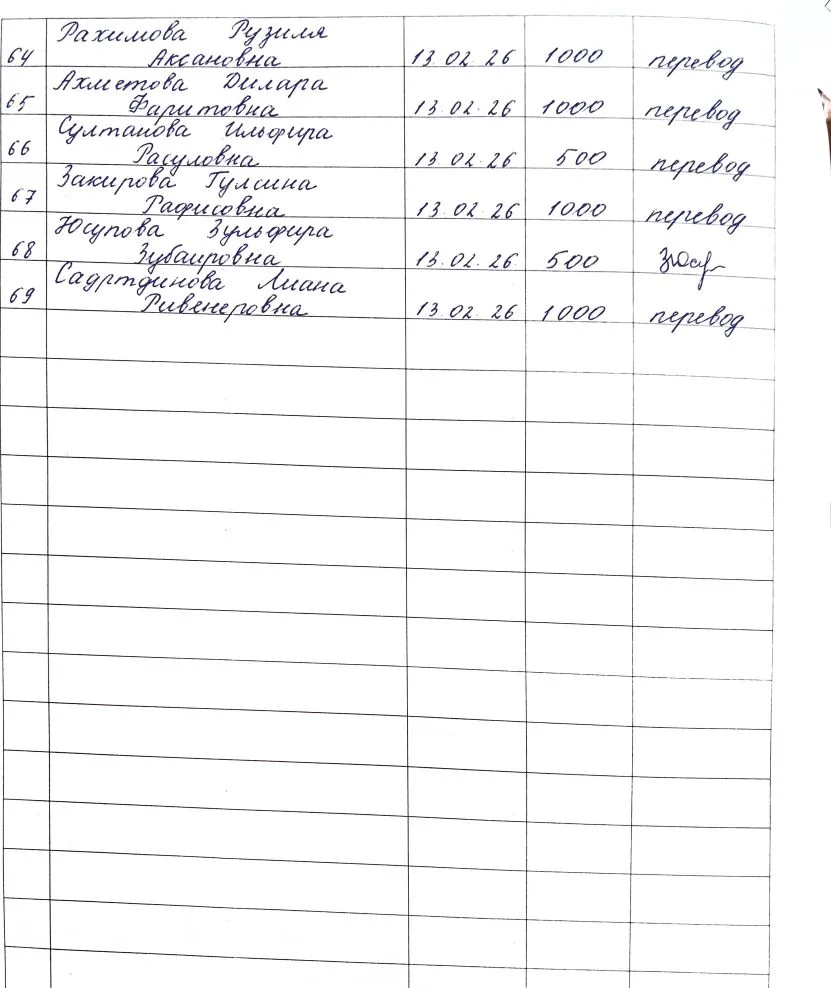 Рахимова Рузиля
64 Аксановна 13.02.26 1000 перевод
Ахметова Дилара
65 Фаритовна 13.02.26 1000 перевод
Султанова Ильфира
66 Расуловна 13.02.26 500 перевод
Закирова Гулсина
67 Рафисовна 13.02.26 1000 перевод
Юсупова Зульфира
68 Зубаировна 13.02.26 500
Садртдинова Лиана
69 Ривенеровна 13.02.26 1000 перевод